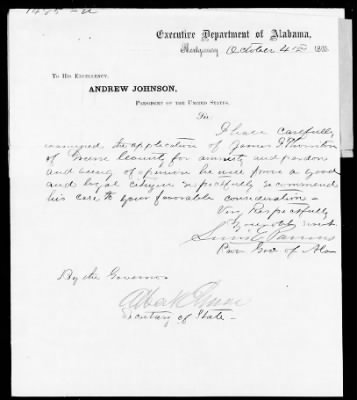 Executive Department of Alabama,
Montgomery October 4th 1865.
To His Excellency,
ANDREW JOHNSON,
President of the United States.
Sir:
I have carefully
examined the application of James I Thornton
of Greene County for amnesty and pardon
and being of opinion he will prove a good
and loyal citizen respectfully recommend
his case to your favorable consideration -
Very Respectfully
Your obt Servt
Lewis E Parsons
Prov Gov of Ala
By the Governor
Albert Elmore
Secretary of State -